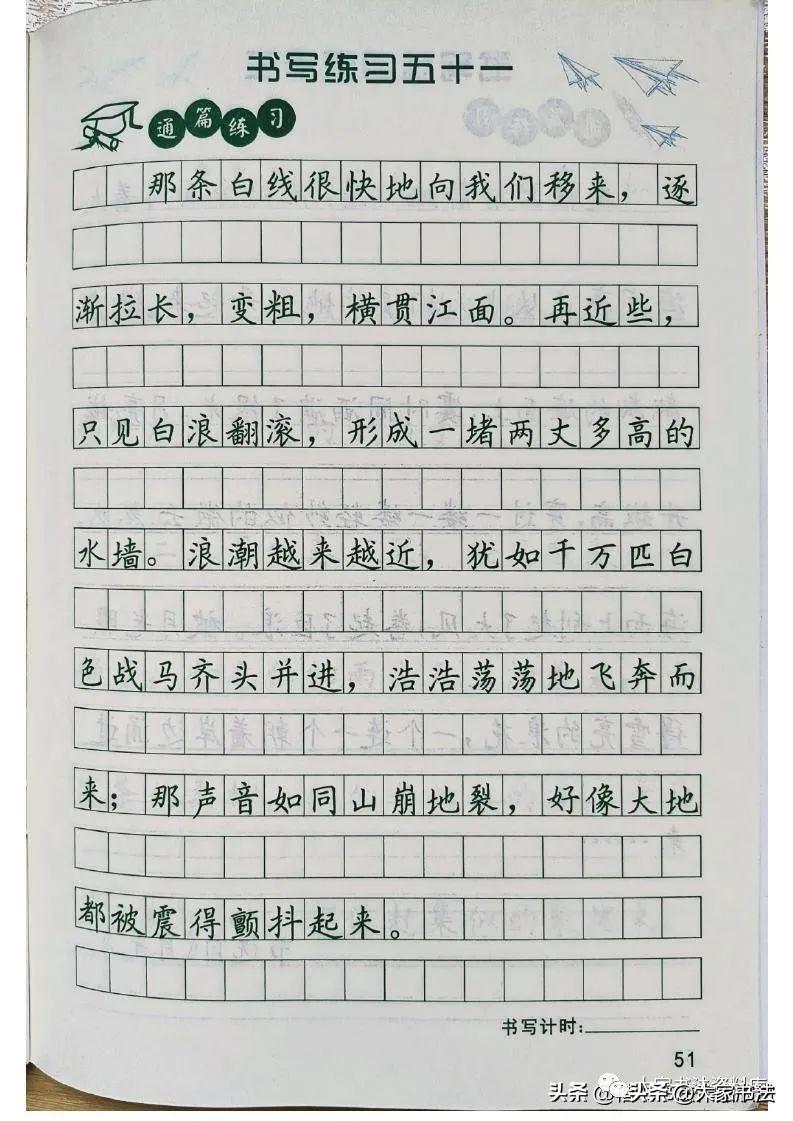 书写练习五十一
通篇练习
那条白线很快地向我们移来，逐
渐拉长，变粗，横贯江面。再近些，
只见白浪翻滚，形成一堵两丈多高的
水墙。浪潮越来越近，犹如千万匹白
色战马齐头并进，浩浩荡荡地飞奔而
来；那声音如同山崩地裂，好像大地
都被震得颤抖起来。
书写计时：
51
头条@大家书法